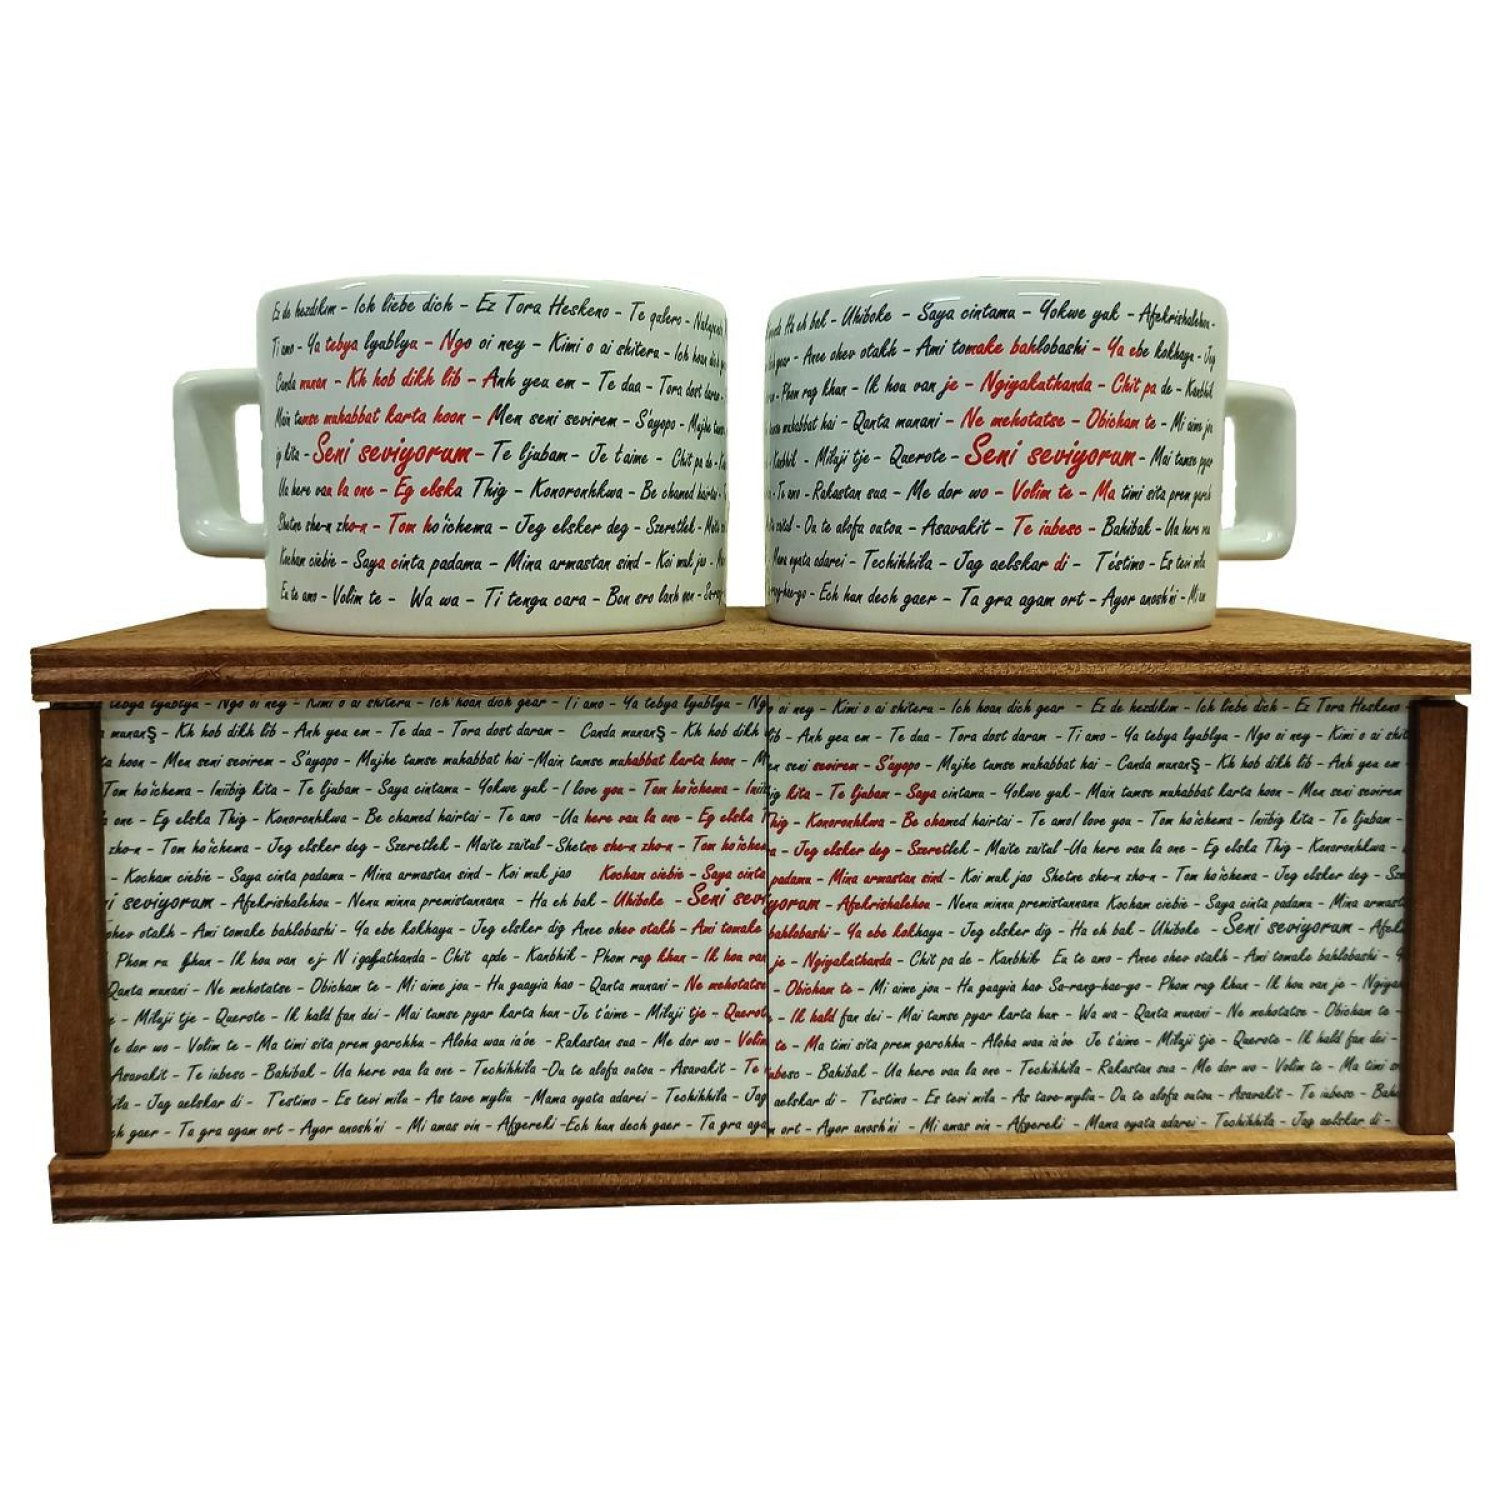 Ez de hezdikim - Ich liebe dich - Ez Tora Heskeno - Te quiero -
Ti amo - Ya tebya lyublyu - Ngo oi ney - Kimi o ai shiteru - Ich hoan dich
Canda munan - Kh hob dikh lib - Anh yeu em - Te dua - Tora dost daram -
Main tumse muhabbat karta hoon - Men seni sevirem - S'ayopo - Mujhe tumse
kita - Seni seviyorum - Te ljubam - Je t'aime - Chit pa de -
Ua here vau la one - Eg elska Thig - Konoronhkwa - Be chamed hairtai -
Shetne she-n zho-n - Tom ho'ichema - Jeg elsker deg - Szeretlek -
Kocham ciebie - Saya cinta padamu - Mina armastan sind - Koi muk jao -
Eu te amo - Volim te - Wa wa - Ti tengu cara - Bon sro lanh oon -
Ha eh bak - Uhiboke - Saya cintamu - Yokwe yuk - Afekrishalehou -
gear - Anee ohev otakh - Ami tomake bahlobashi - Ya ebe kokhayu - Jeg
- Phom rug khun - Ik hou van je - Ngiyakuthanda - Chit pa de - Kanbhik
muhabbat hai - Qanta munani - Ne mohotatse - Obicham te - Mi aime jou
- Kanbhik - Miluji tje - Querote - Seni seviyorum - Mai tumse pyar
- Te amo - Rakastan sua - Me dor wo - Volim te - Ma timi sita prem garch
zaitul - Ou te alofa outou - Asavakit - Te iubesc - Bahibak - Ua here vau
Mama oyata adarei - Techihhila - Jag aelskar di - T'estimo - Es tevi milu
rang-hae-go - Ech hun dech gaer - Ta gra agam ort - Ayor anosh'ni -
tebya lyublyu - Ngo oi ney - Kimi o ai shiteru - Ich hoan dich gear - Ti amo - Ya tebya lyublyu - Ngo oi ney - Kimi o ai shiteru - Ich hoan dich gear - Ez de hezdikim - Ich liebe dich - Ez Tora Heskeno -
munanŞ - Kh hob dikh lib - Anh yeu em - Te dua - Tora dost daram - Canda munanŞ - Kh hob dikh lib - Anh yeu em - Te dua - Tora dost daram - Ti amo - Ya tebya lyublyu - Ngo oi ney - Kimi o ai
hoon - Men seni sevirem - S'ayopo - Mujhe tumse muhabbat hai -Main tumse muhabbat karta hoon - Men seni sevirem - S'ayopo - Mujhe tumse muhabbat hai - Canda munanŞ - Kh hob dikh lib - Anh yeu em -
Tom ho'ichema - Iniibig kita - Te ljubam - Saya cintamu - Yokwe yuk - I love you - Tom ho'ichema - Iniibig kita - Te ljubam - Saya cintamu - Yokwe yuk - Main tumse muhabbat karta hoon - Men seni sevirem
one - Eg elska Thig - Konoronhkwa - Be chamed hairtai - Te amo -Ua here vau la one - Eg elska Thig - Konoronhkwa - Be chamed hairtai - Te amoI love you - Tom ho'ichema - Iniibig kita - Te ljubam -
zho-n - Tom ho'ichema - Jeg elsker deg - Szeretlek - Maite zaitul -Shetne she-n zho-n - Tom ho'ichema - Jeg elsker deg - Szeretlek - Maite zaitul -Ua here vau la one - Eg elska Thig - Konoronhkwa -
- Kocham ciebie - Saya cinta padamu - Mina armastan sind - Koi muk jao Kocham ciebie - Saya cinta padamu - Mina armastan sind - Koi muk jao Shetne she-n zho-n - Tom ho'ichema - Jeg elsker deg -
seviyorum - Afekrishalehou - Nenu minnu premistunnanu - Ha eh bak - Uhiboke - Seni seviyorum - Afekrishalehou - Nenu minnu premistunnanu Kocham ciebie - Saya cinta padamu - Mina
ohev otakh - Ami tomake bahlobashi - Ya ebe kokhayu - Jeg elsker dig Anee ohev otakh - Ami tomake bahlobashi - Ya ebe kokhayu - Jeg elsker dig - Ha eh bak - Uhiboke - Seni seviyorum -
Phom ru - Ik hou van - Chit apde - Kanbhik - Phom rug khun - Ik hou van je - Ngiyakuthanda - Chit pa de - Kanbhik Eu te amo - Anee ohev otakh - Ami tomake bahlobashi -
Qanta munani - Ne mohotatse - Obicham te - Mi aime jou - Hu guayia hao - Qanta munani - Ne mohotatse - Obicham te - Mi aime jou - Hu guayia hao Sa-rang-hae-go - Phom rug khun - Ik hou van je -
- Miluji tje - Querote - Ik hald fan dei - Mai tumse pyar karta hun -Je t'aime - Miluji tje - Querote - Ik hald fan dei - Mai tumse pyar karta hun - Wa wa - Qanta munani - Ne mohotatse - Obicham te -
dor wo - Volim te - Ma timi sita prem garchhu - Aloha wau ia'oe - Rakastan sua - Me dor wo - Volim te - Ma timi sita prem garchhu - Aloha wau ia'oe Je t'aime - Miluji tje - Querote - Ik hald fan dei -
Asavakit - Te iubesc - Bahibak - Ua here vau la one - Techihhila -Ou te alofa outou - Asavakit - Te iubesc - Bahibak - Ua here vau la one - Techihhila - Rakastan sua - Me dor wo - Volim te - Ma timi
- Jag aelskar di - T'estimo - Es tevi milu - As tave myliu -Mama oyata adarei - Techihhila - Jag aelskar di - T'estimo - Es tevi milu - As tave myliu- Ou te alofa outou - Asavakit - Te iubesc -
gaer - Ta gra agam ort - Ayor anosh'ni - Mi amas vin - Afgereki -Ech hun dech gaer - Ta gra agam ort - Ayor anosh'ni - Mi amas vin - Afgereki - Mama oyata adarei - Techihhila - Jag aelskar di -